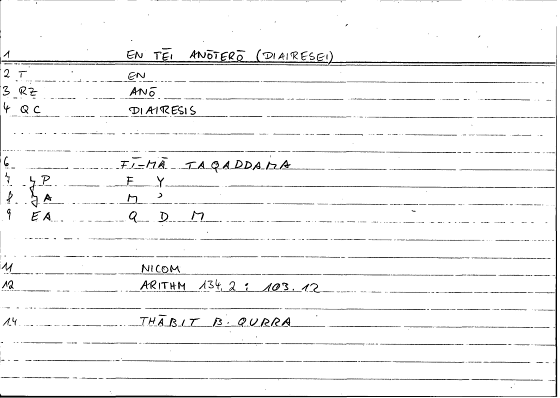 1 EN TĒI ANŌTERŌ (DIAIRESEI)
2 T EN
3 RZ ANŌ
4 QC DIAIRESIS
6 FĪ-MĀ TAQADDAMA
7 P F Y
8 A M ʾ
9 EA Q D M
11 NICOM
12 ARITHM 134.2 : 103.12
14 THĀBIT B. QURRA